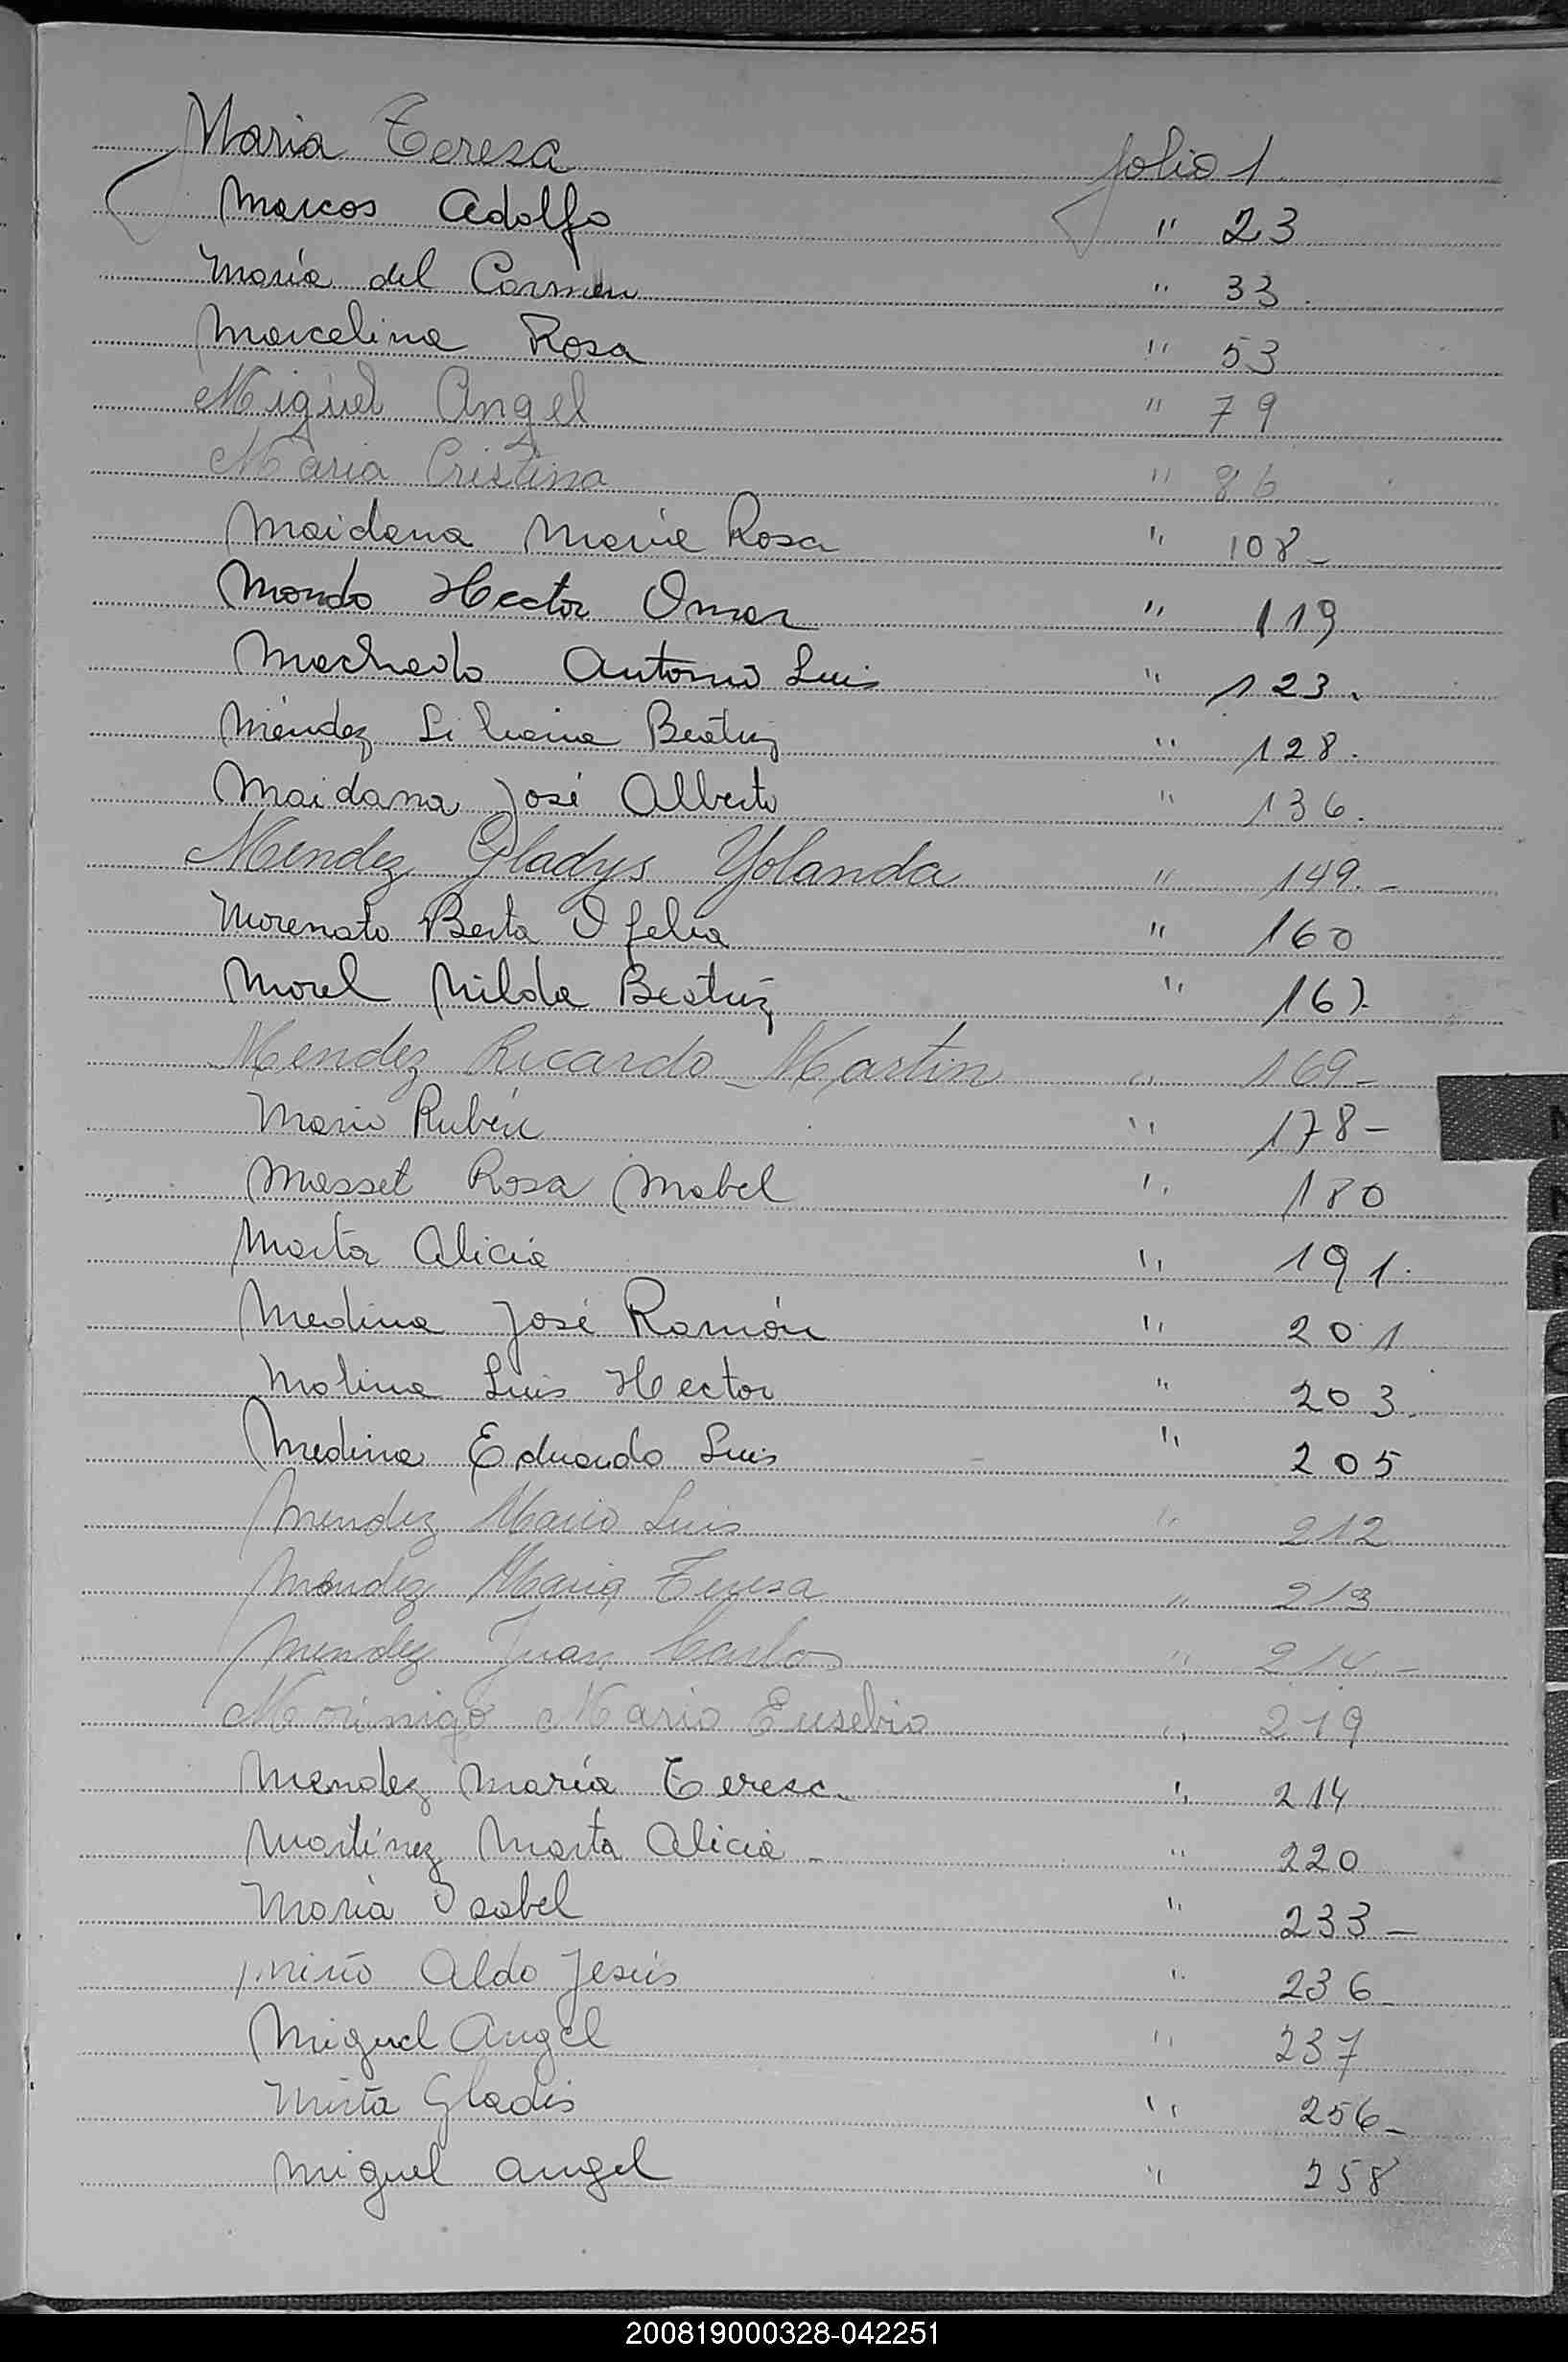 Maria Teresa folio 1.
Marcos Adolfo " 23
María del Carmen " 33.
Marcelina Rosa " 53
Miguel Angel " 79
Maria Cristina " 86
Maidana María Rosa " 108-
Mondo Hector Omar " 119
Machado Antonio Luis " 123.
Méndez Liliana Beatriz " 128.
Maidana José Alberto " 136.
Mendez Gladys Yolanda " 149.-
Morenato Berta Ofelia " 160
Morel Nilda Beatriz " 167.
Mendez Ricardo Martin " 169-
Mario Rubén " 178-
Masset Rosa Mabel " 180
Marta Alicia " 191.
Medina José Ramón " 201
Molina Luis Hector " 203.
Medina Eduardo Luis " 205
Mendez Mario Luis " 212
Mendez Maria Teresa " 213
Mendez Juan Carlos " 214-
Morinigo Mario Eusebio " 219
Mendez María Teresa " 214
Martínez Marta Alicia - " 220
María Isabel " 233-
Miño Aldo Jesús " 236-
Miguel Angel " 237
Mirta Gladis " 256-
Miguel angel " 258
200819000328-042251